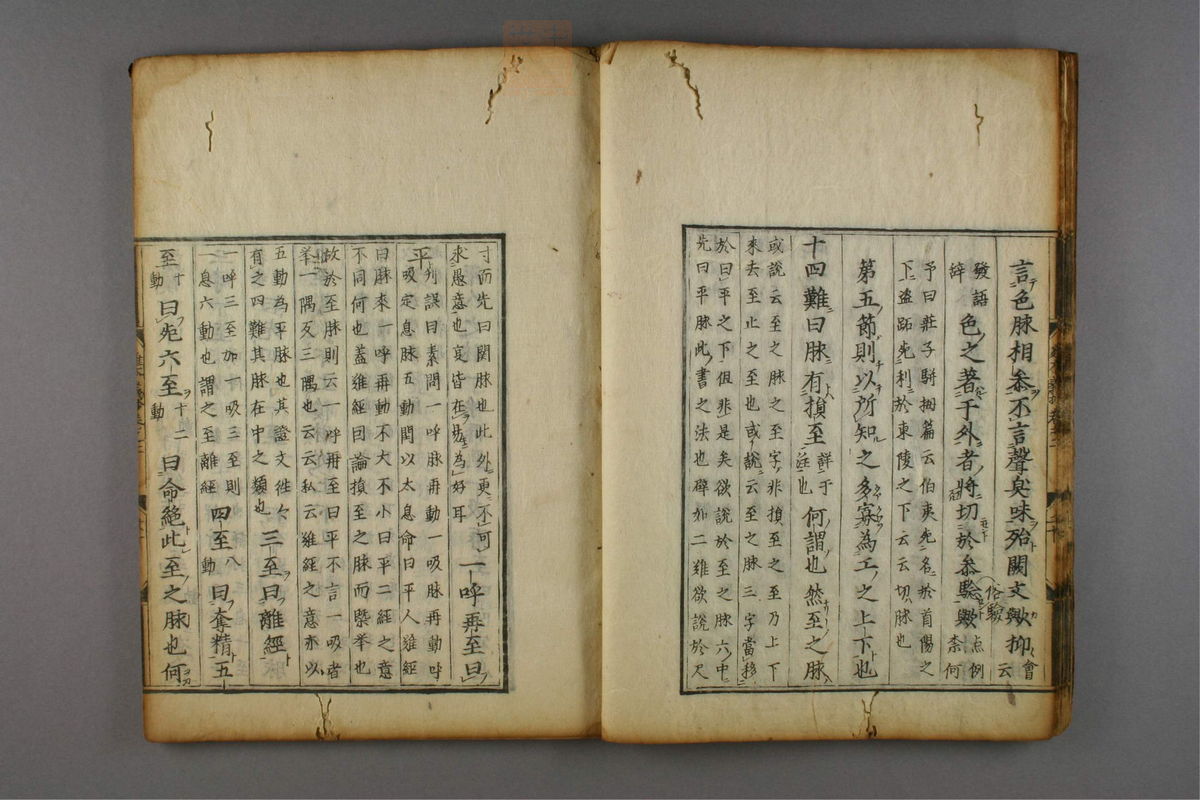 言色脉相参不言聲臭味殆闕文歟抑會云
發語辞色之著于外者將切於参驗歟点例奈何
予曰莊子駢拇篇云伯夷死名於首陽之
下盗跖死利於東陵之下云云切脉也
第五節則以所知之多寡為工之上下也
十四難曰脉有損至詳于註也何謂也然至之脉
或説云至之脉之至字非損至之至乃上下
來去至止之至也或説云至之脉三字當移
於曰平之下但非是矣欲説於至之脉六中
先曰平脉此書之法也礕如二難欲説於尺
寸而先曰関脉也此外更不可
求愚意也寔皆在為好耳一呼再至曰
平列誤曰素問一呼脉再動一吸脉再動呼
吸定息脉五動閏以太息命曰平人難經
曰脉來一呼再動不大不小曰平二經之意
不同何也蓋難經曰論損至之脉而槩举也
故於至脉則云一呼再至曰平不言一吸者
举一隅反三隅也云云私云難經之意亦以
五動為平脉也其證文徃々
有之四難其脉在中之類也三至曰離經
一呼三至加一吸三至則
一息六動也謂之至離經四至八動曰奪精五
至十動曰死六至十二動曰命絶此至之脉也何